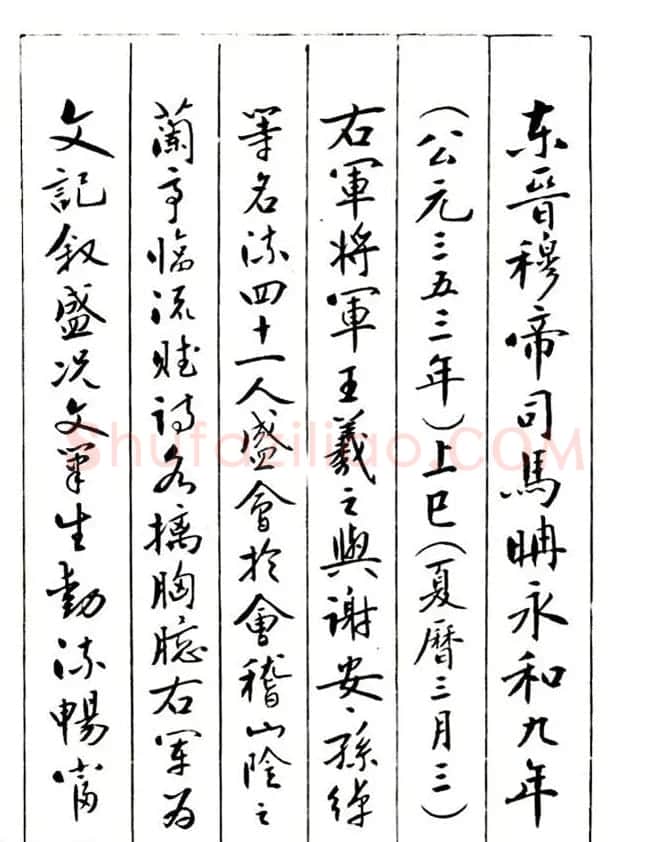 东晉穆帝司馬聃永和九年
(公元三五三年)上巳(夏曆三月三)
右軍将軍王羲之與謝安、孫绰
等名流四十一人盛會於會稽山陰之
蘭亭臨流賦诗各摛胸臆右军为
文記叙盛况文筆生動流暢
Shufaziliao.COM